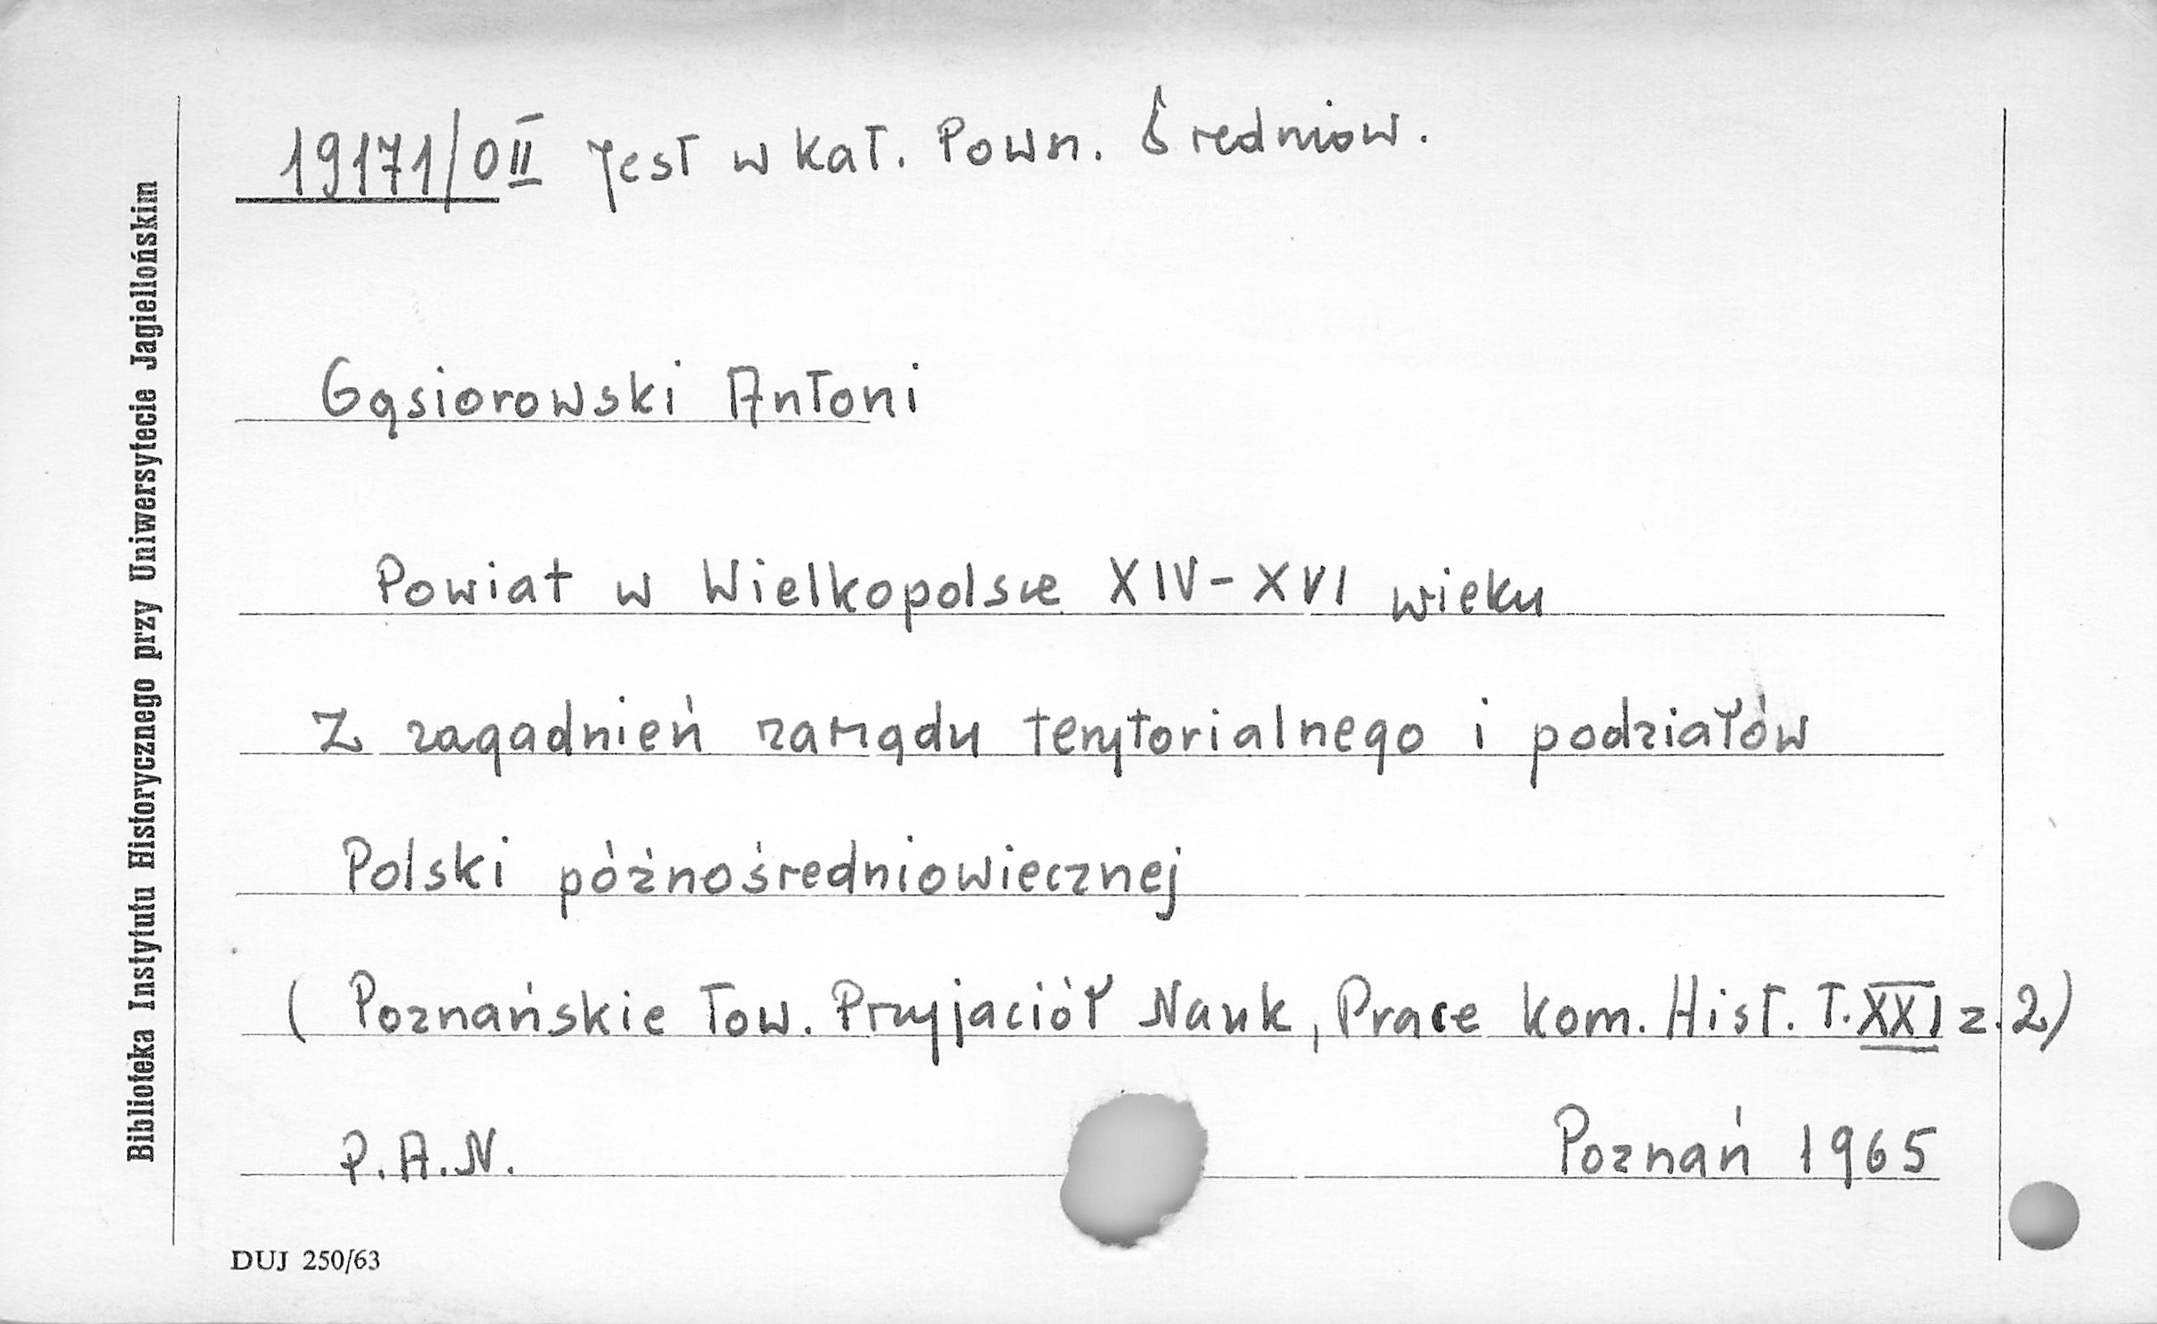 19171/0II Jest w kat. Pown. Średniow.
Gąsiorowski Antoni
Powiat w Wielkopolsce XIV-XVI wieku
Z zagadnień zarządu terytorialnego i podziałów
Polski późnośredniowiecznej
( Poznańskie Tow. Przyjaciół Nauk, Prace Kom. Hist. T. XXI z. 2)
P.A.N. Poznań 1965
DUJ 250/63
Biblioteka Instytutu Historycznego przy Uniwersytecie Jagiellońskim